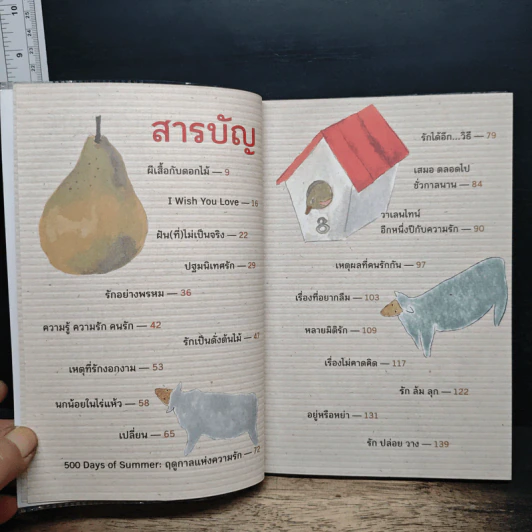 สารบัญ
ผีเสื้อกับดอกไม้ — 9
I Wish You Love — 16
ฝัน(ที่)ไม่เป็นจริง — 22
ปฐมนิเทศรัก — 29
รักอย่างพรหม — 36
ความรู้ ความรัก คนรัก — 42
รักเป็นดั่งต้นไม้ — 47
เหตุที่รักงอกงาม — 53
นกน้อยในไร่แห้ว — 58
เปลี่ยน — 65
500 Days of Summer: ฤดูกาลแห่งความรัก — 72
รักได้อีก...วิธี — 79
เสมอ ตลอดไป
ชั่วกาลนาน — 84
วาเลนไทน์
อีกหนึ่งปีกับความรัก — 90
เหตุผลที่คนรักกัน — 97
เรื่องที่อยากลืม — 103
หลายมิติรัก — 109
เรื่องไม่คาดคิด — 117
รัก ล้ม ลุก — 122
อยู่หรือหย่า — 131
รัก ปล่อย วาง — 139
8
10
9